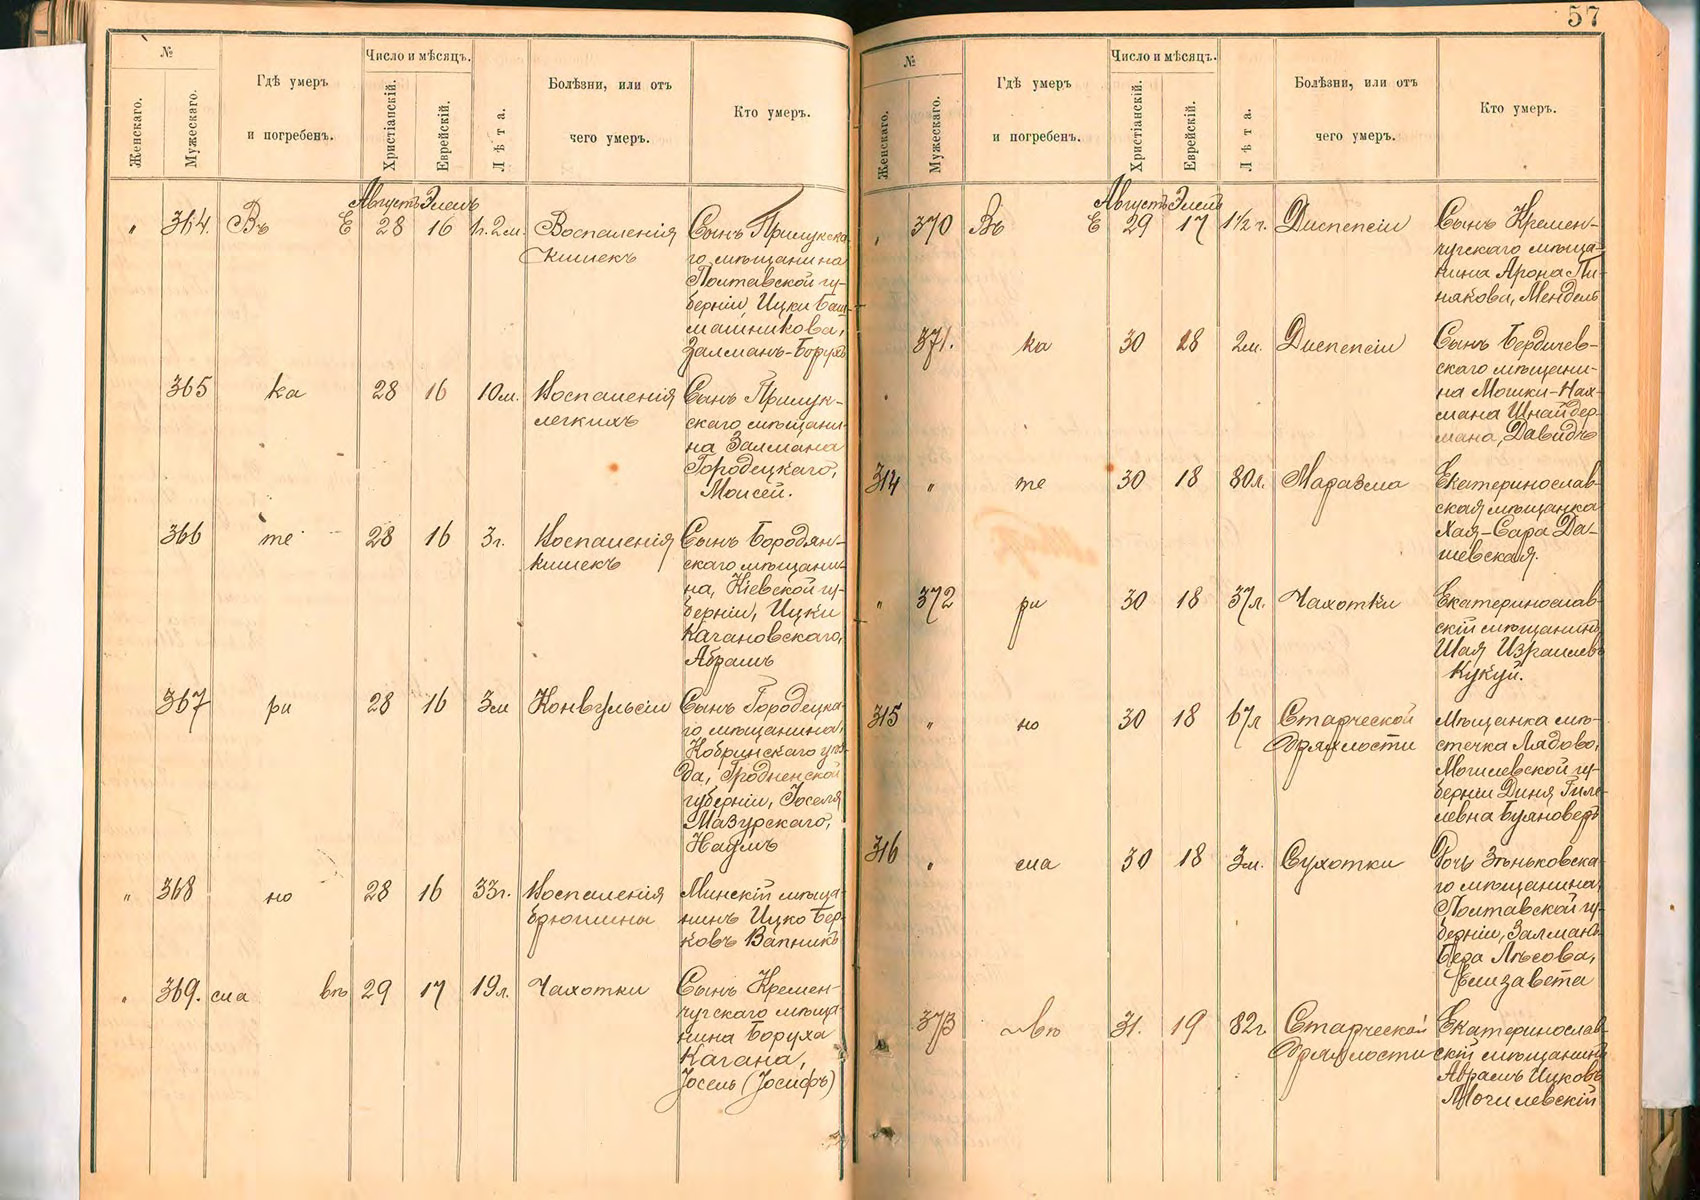 №
Число и мѣсяцъ.
Женскаго.
Мужескаго.
Гдѣ умеръ
и погребенъ.
Христіанскій.
Еврейскій.
Лѣта.
Болѣзни, или отъ
чего умеръ.
Кто умеръ.
Августъ Элелъ
„ 364. Въ Е 28 16 1г. 2м. Воспаленія Сынъ Прилукска-
кишекъ го мѣщанина
Полтавской гу-
берніи, Ицки Баш-
машникова,
Залманъ-Борухъ
365 ка 28 16 10м. Воспаленія Сынъ Прилук-
легкихъ скаго мѣщани-
на Залмана
Городецкаго,
Моисей.
366 те 28 16 3г. Воспаленія Сынъ Бородян-
кишекъ скаго мѣщани-
на, Кіевской гу-
берніи, Ицки
Качановскаго,
Абрамъ
367 ри 28 16 3м Конвульсіи Сынъ Городецка-
го мѣщанина,
Кобринскаго уѣз-
да, Гродненской
губерніи, Іоселя
Мазурскаго,
Наумъ
„ 368 но 28 16 33г. Воспаленія Минскій мѣща-
брюшины нинъ Ицко Бер-
ковъ Вапникъ
„ 369. сла вѣ 29 17 19л. Чахотки Сынъ Кремен-
чугскаго мѣща-
нина Боруха
Кагана,
Іосель (Іосифъ)
57
№
Число и мѣсяцъ.
Женскаго.
Мужескаго.
Гдѣ умеръ
и погребенъ.
Христіанскій.
Еврейскій.
Лѣта.
Болѣзни, или отъ
чего умеръ.
Кто умеръ.
Августъ Элелъ
„ 370 Въ Е 29 17 1½ г. Диспепсіи Сынъ Кремен-
чугскаго мѣща-
нина Арона Пи-
някова, Мендель
371. ка 30 28 2м. Диспепсіи Сынъ Бердичев-
скаго мѣщани-
на Мошки-Нах-
мана Шнайдер-
мана, Давидъ
314 „ те 30 18 80л. Маразма Екатеринослав-
ская мѣщанка
Хая-Сара Да-
шевская.
„ 372 ри 30 18 37л. Чахотки Екатеринослав-
скій мѣщанинъ
Шая Израилевъ
Кукуй.
315 „ но 30 18 67л Старческой Мѣщанка мѣ-
дряхлости стечка Лядово,
Могилевской гу-
берніи Диня Гиле-
левна Буяноверъ
316 „ сла 30 18 3м. Сухотки Дочь Зѣньковска-
го мѣщанина,
Полтавской гу-
берніи, Залманъ-
Бера Лѣсова,
Елизавета
373 вѣ 31. 19 82г. Старческой Екатеринослав-
дряхлости скій мѣщанинъ
Абрамъ Ицковъ
Могилевскій